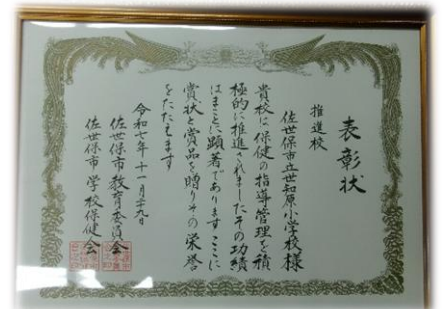 表彰状
推進校
佐世保市立世知原小学校様
貴校は保健の指導管理を積
極的に推進されましたその功績
はまことに顕著であります ここに
賞状と賞品を贈りその栄誉
をたたえます
令和七年十一月十九日
佐世保市教育委員会
佐世保市学校保健会